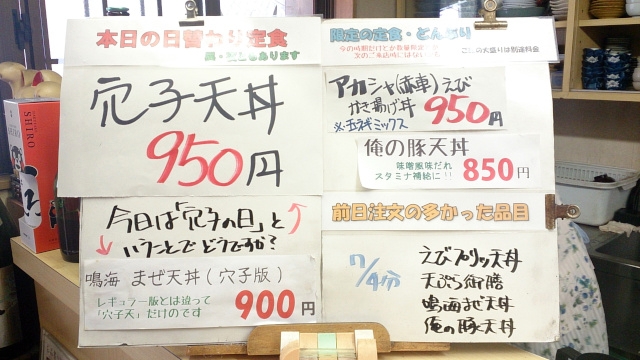 本日の日替わり定食
穴子天丼
950円
今日は「穴子の日」と
いうことでどうですか?
鳴海 まぜ天丼(穴子版)
レギュラー版とは違って
「穴子天」だけのです
900円
限定の定食・どんぶり
ごはんの大盛りは別途料金
アカシャ(赤車)えび
かき揚げ丼 950円
※玉ネギミックス
俺の豚天丼
味噌風味だれ
スタミナ補給に!!
850円
前日注文の多かった品目
7/4分
えびプリッ天丼
天ぷら御膳
鳴海まぜ天丼
俺の豚天丼
SHIRO